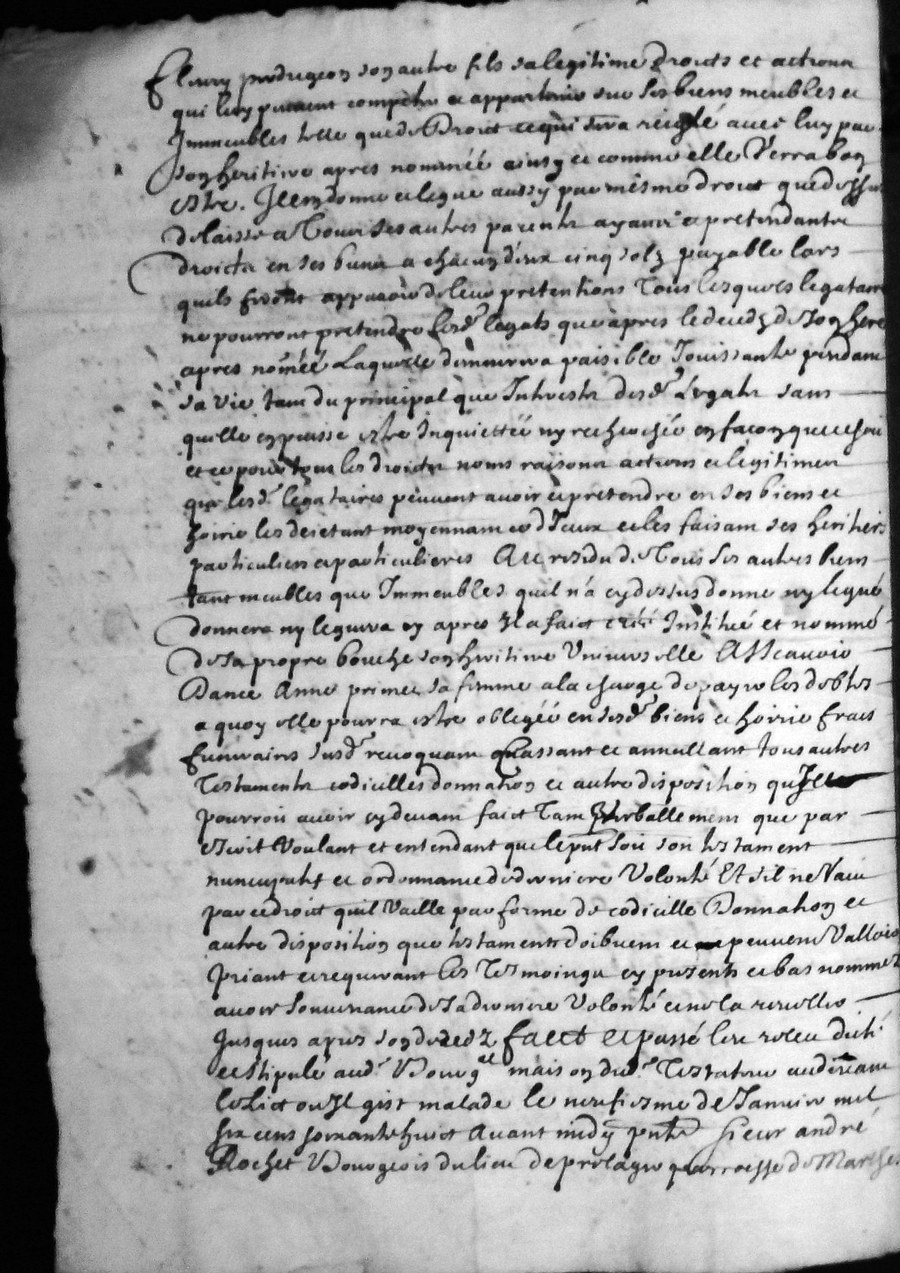 Fleury prudugeon son autre fils sa legitime droicts et actions
qui luy peuvent competer et appartenir sur ses biens meubles et
Immeubles telle que de Droict ce qui sera reiglé avec luy par
son heritiere apres nommée ainsy et comme elle Verra bon
estre. Item donne et legue aussy par mesme droict que dessus
delaisse a Tous ses autres parents ayants et pretendants
droicts en ses biens a chacun d'eux cinq solz payable lors
quils feront apparoir de leur pretentions Tous lesquels legataires
ne pourront pretendre lesd. legats que apres le deceds de son here
apres nômée Laquelle demeurera paisible Jouissante pendant
sa vie tant du principal que Interests desd. Legats sans
quelle en puisse estre Inquiettée ny recherchée en façon que ce soit
et ce pour tous les droicts noms raisons actions et legitimes
que lesd. legataires peuvent avoir et pretendre en ses biens et
hoirie les dejetant moyennant ce d'Iceux et les faisant ses heritiers
particuliers et particulieres Au residu de Tous ses autres biens
tant meubles que Immeubles quil n'a cy dessus donne ny legué
donnera ny leguera cy apres Il a faict créé Institué et nommé
de sa propre bouche son heritiere Universelle Asscavoir
Dame Anne prime sa femme a la charge de payer les debtes
a quoy elle pourra estre obligée en sesd. biens et hoirie frais
funeraires susd. revoquant Cassant et annullant tous autres
Testaments codicilles donnation et autre disposition qu'Il
pourroit avoir cy devant faict Tant Verballement que par
escrit Voulant et entendant que le pnt soit son testament
nuncupatif et ordonnance de derniere Volonté Et s'il ne Vaut
par ce droict quil Vaille par forme de codicille Donnation et
autre disposition que testaments doibvent et peuvent Valloir
Priant et requerant les Tesmoings cy presents et bas nommez
avoir souvenance de sa derniere Volonté et ne la reveller
Jusques apres son decedz faict et passé leu releu dicté
et stipulé aud. Bourg mais on dud. Testateur au devant
le Lict ou Il gist malade le neufiesme de Janvier mil
six cens soixante huict avant midy pnts sieur andré
Rochet Bourgeois du lieu de parroesse de